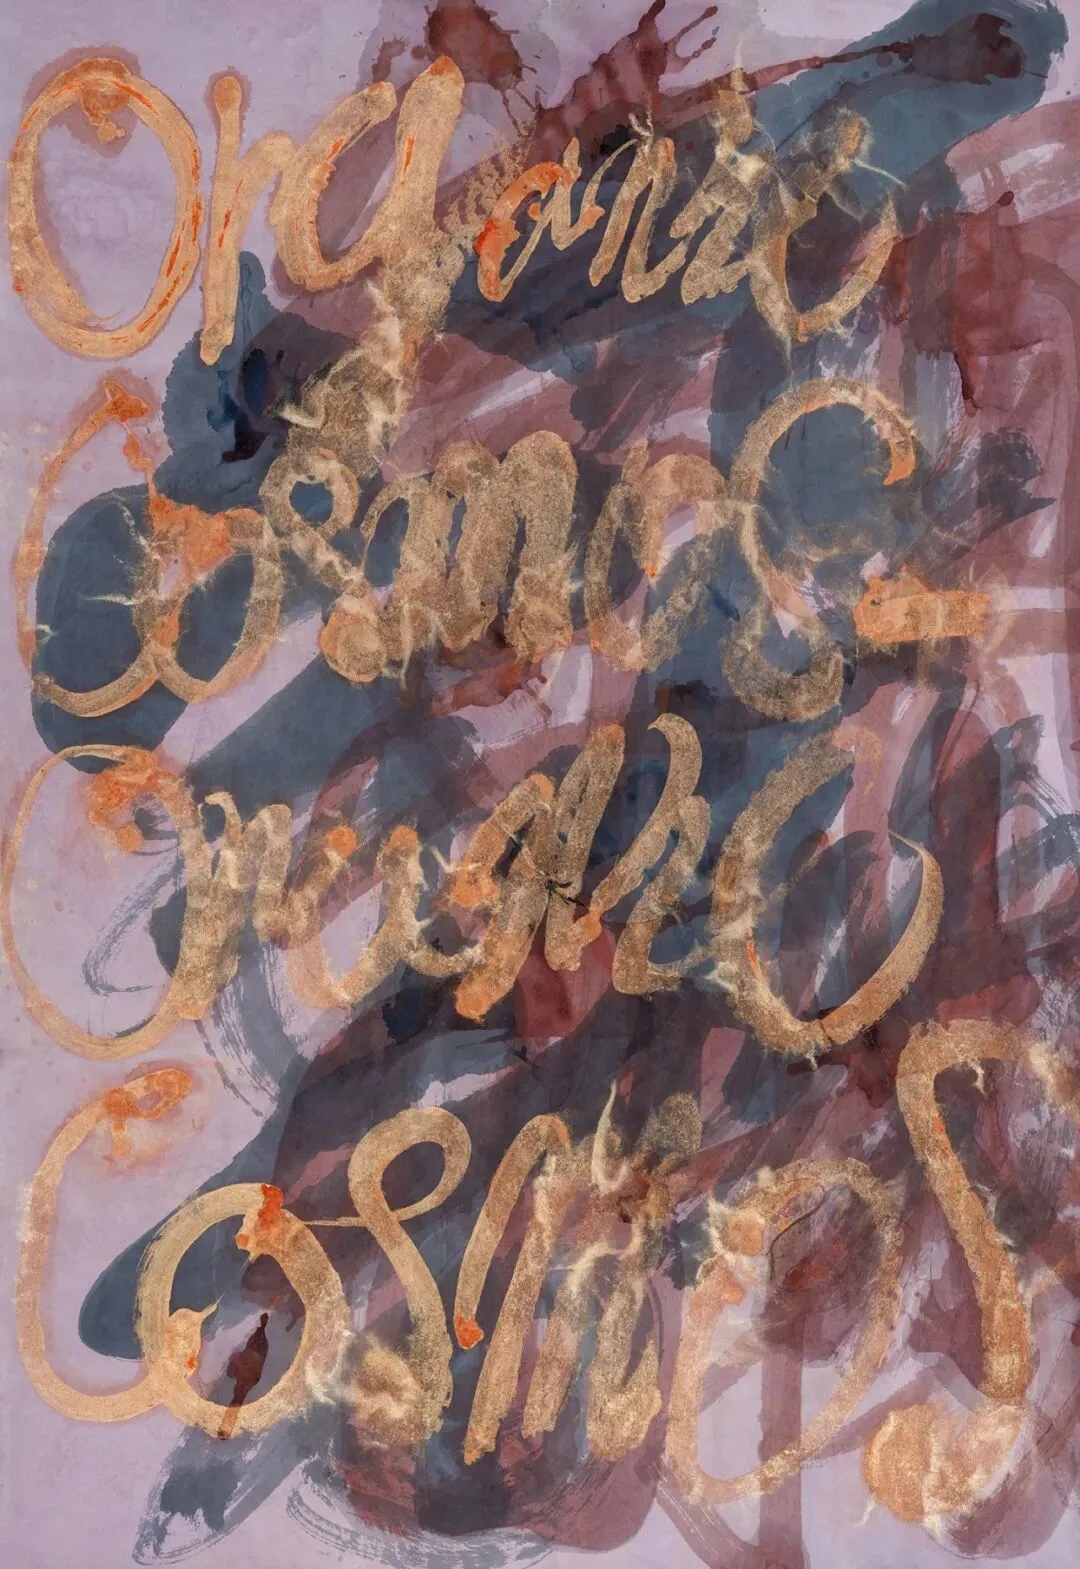 Organic
Cosmos
Organic
Cosmos